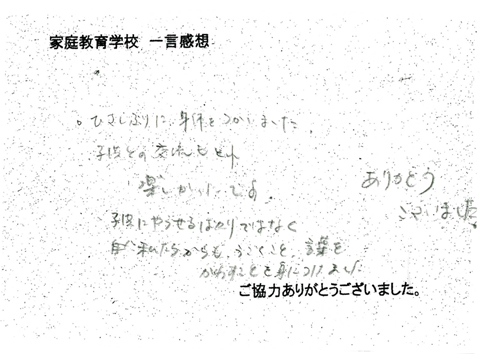 家庭教育学校 一言感想
。ひさしぶりに、身体をつかいました。
子供との交流もでき
楽しかったです。
ありがとう
ございました
・子供にやらせるばかりではなく
私たちからも、うごくこと、言葉を
かわすことを身につけました
ご協力ありがとうございました。